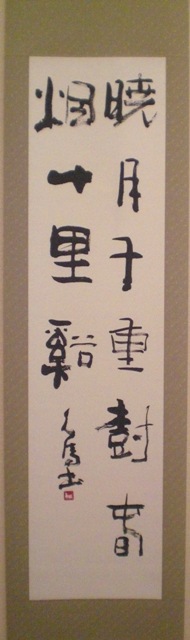 暁月千重樹春
烟十里谿